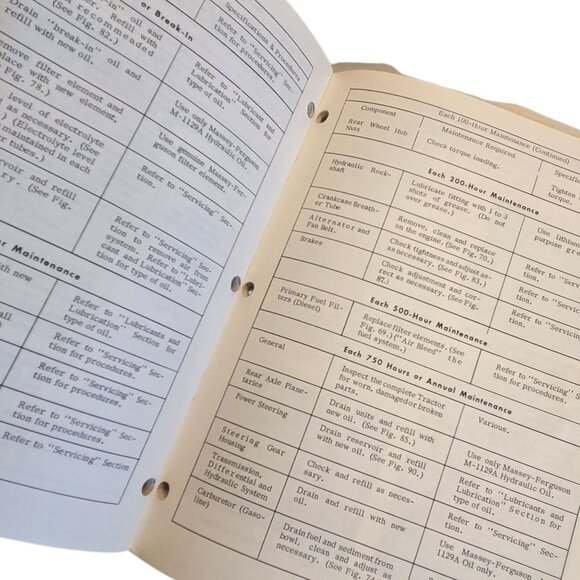 or Break-In
Drain "break-in" oil and
refill with recommended
(See Fig. 82.)
Drain "break-in" oil and
refill with new oil.
remove filter element and
replace with new element.
(See Fig. 78.)
level of electrolyte
as necessary. (See
(Electrolyte level
maintained in each
tubes.)
reservoir and refill
(See Fig.
Maintenance
with new
Specifications & Procedures
Refer to "Servicing" Sec-
tion for procedures.
Refer to "Lubricant and
Lubrication" Section for
type of oil.
Use only Massey-Ferguson
M-1129A Hydraulic Oil.
Use genuine Massey-Fer-
guson filter element.
Refer to "Servicing" Sec-
tion for procedures.
Refer to "Servicing" Sec-
tion to remove air from
system. Refer to "Lubri-
cant and Lubrication" Sec-
tion for type of oil.
Refer to "Lubricants and
Lubrication" Section for
type of oil.
Refer to "Servicing" Sec-
tion for procedures.
Refer to "Servicing" Sec-
tion for procedures.
Refer to "Servicing" Section
Each 100-Hour Maintenance (Continued)
Component
Maintenance Required
Specific
Rear Wheel Hub
Nuts
Check torque loading.
Tighten
torque.
Each 200-Hour Maintenance
Hydraulic Rock-
shaft
Lubricate fitting with 1 to 3
shots of grease. (Do not
over grease.)
Use lithium
purpose grease
Crankcase Breath-
er Tube
Remove, clean and replace
on the engine. (See Fig. 70.)
Refer to "Serv
tion for procedures.
Alternator and
Fan Belt.
Check tightness and adjust as
necessary. (See Fig. 83.)
Refer to "Serv
Brakes
Check adjustment and cor-
rect as necessary. (See Fig.
87.)
Each 500-Hour Maintenance
Primary Fuel Fil-
ters (Diesel)
Replace filter elements. (See
Fig. 69.) ("Air Bleed" the
fuel system.)
Refer to "Servicing" S
tion for procedures.
Each 750 Hours or Annual Maintenance
General
Inspect the complete Tractor
for worn, damaged or broken
parts.
Various.
Rear Axle Plane-
taries
Drain units and refill with
new oil. (See Fig. 85.)
Use only Massey-Ferguson
M-1129A Hydraulic Oil.
Power Steering
Drain reservoir and refill
with new oil. (See Fig. 90.)
Refer to "Lubricants and
Lubrication" Section for
type of oil.
Steering Gear
Housing
Check and refill as neces-
sary.
Refer to "Servicing" Sec-
tion for procedures.
Transmission,
Differential and
Hydraulic System
Drain and refill with new
oil.
Use Massey-Ferguson
1129A Oil only.
Carburetor (Gaso-
line)
Drain fuel and sediment from
bowl, clean and adjust as
necessary. (See Fig. 74